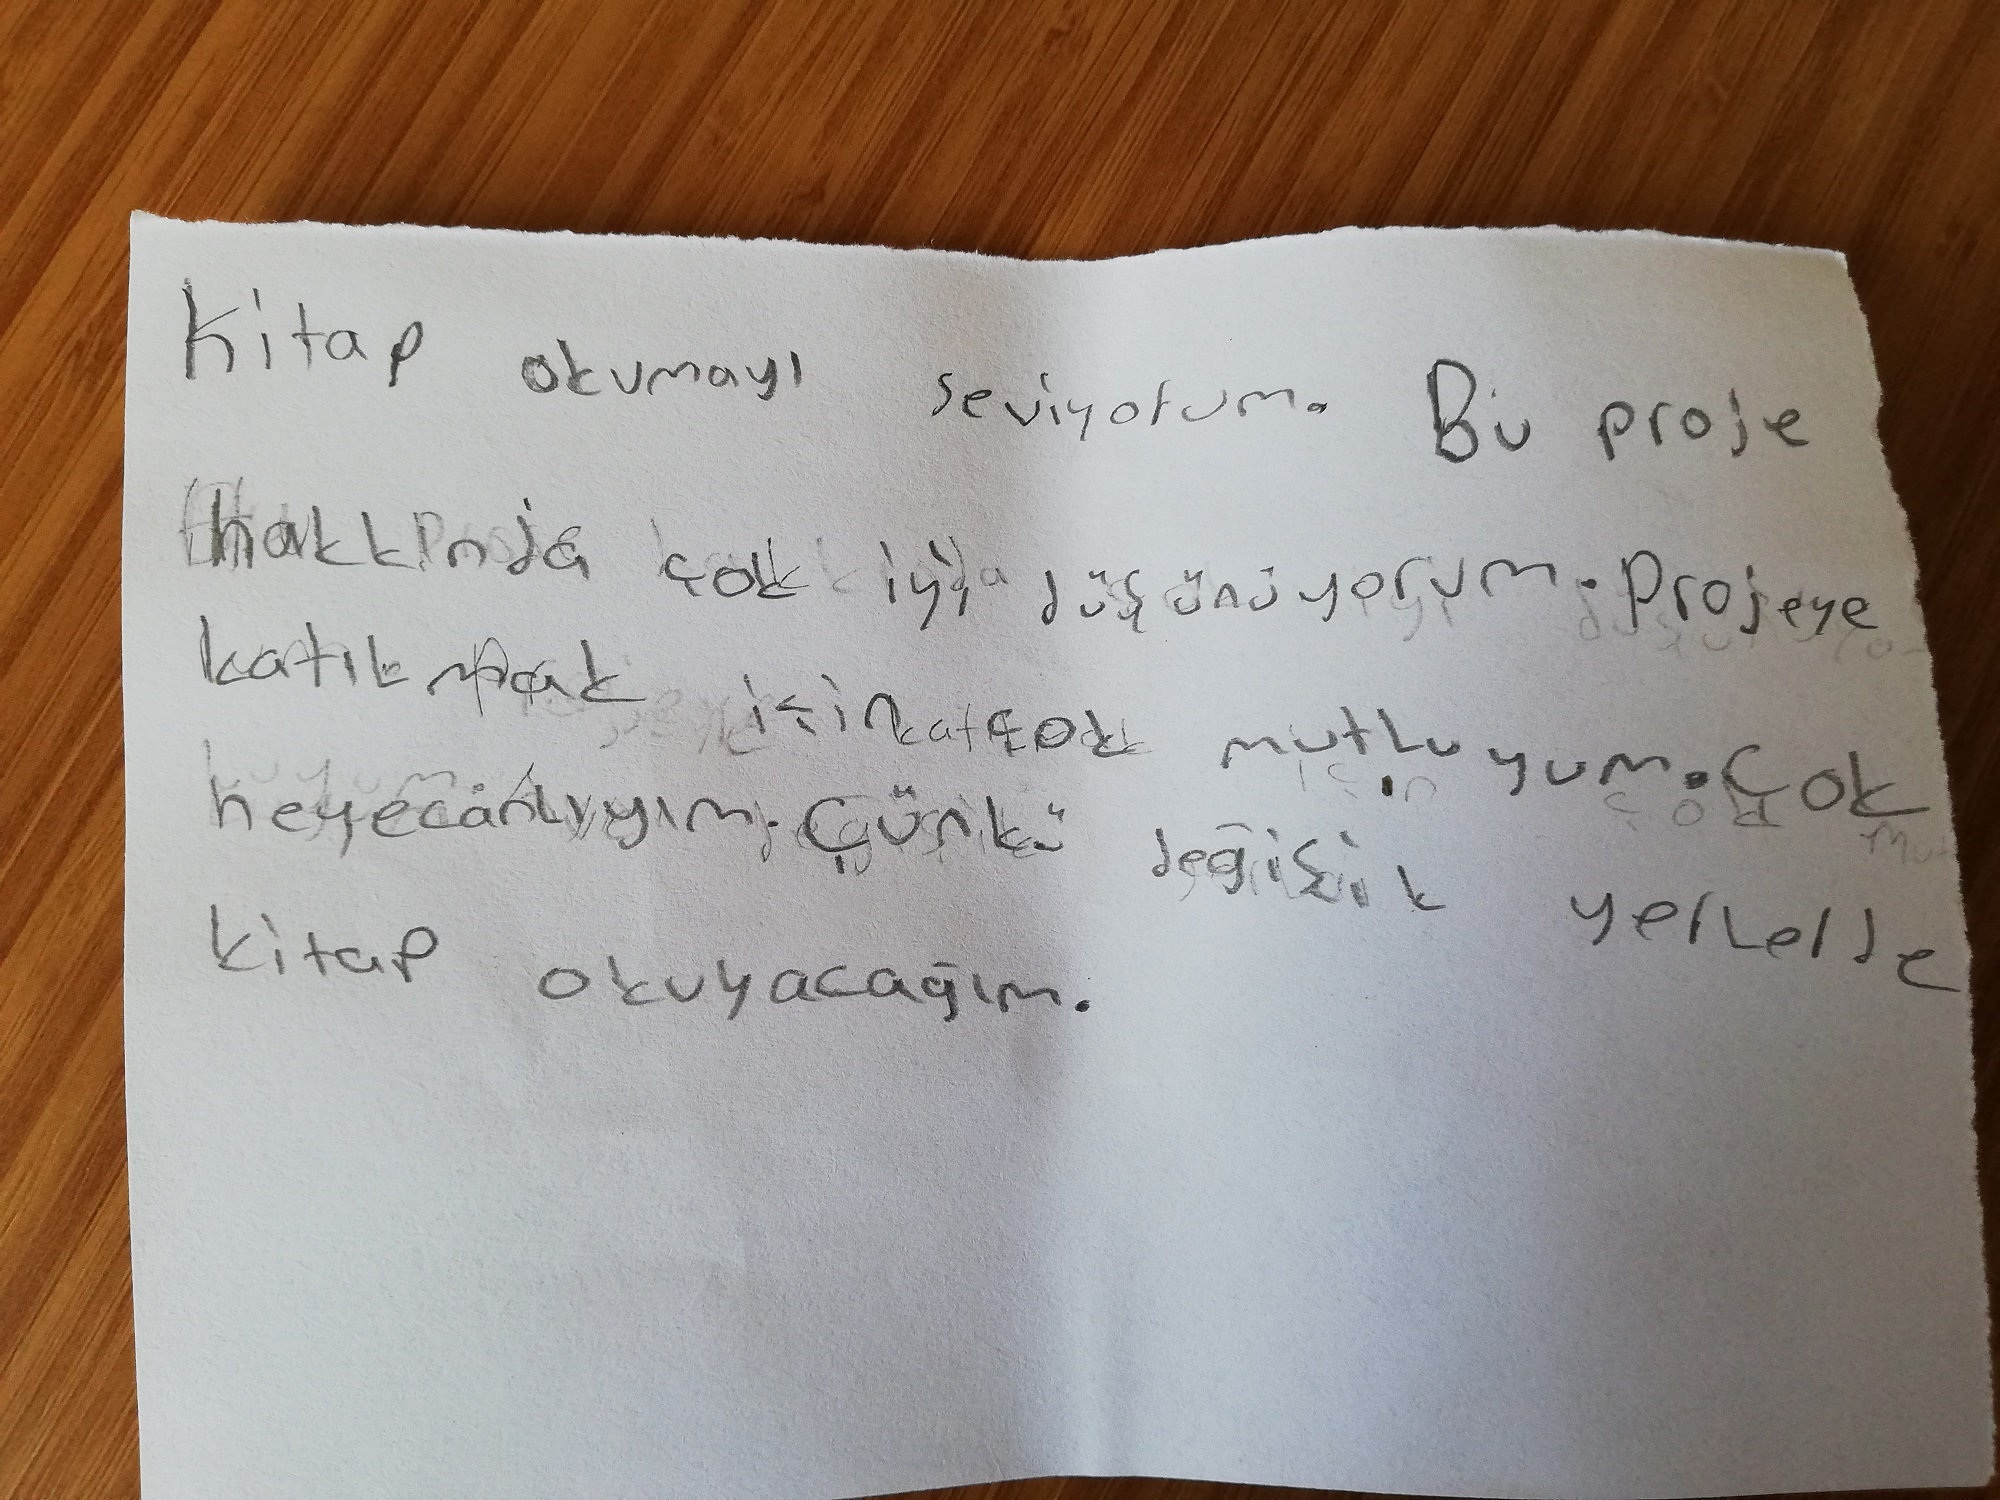 Kitap okumayı seviyorum. Bu proje
hakkında çok iyi düşünüyorum. Projeye
katılmak için çok mutluyum. Çok
heyecanlıyım. Çünkü değişik yerlerde
kitap okuyacağım.